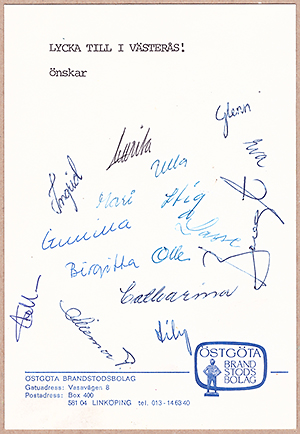 LYCKA TILL I VÄSTERÅS!
önskar
Glenn
Eva
Marita
Ulla
Ingrid
Mari
Stig
Gunilla
Lasse
Birgitta
Olle
Catharina
ÖSTGÖTA
BRAND
STODS
BOLAG
ÖSTGÖTA BRANDSTODSBOLAG
Gatuadress: Vasavägen 8
Postadress: Box 400
581 04 LINKÖPING tel. 013-14 63 40